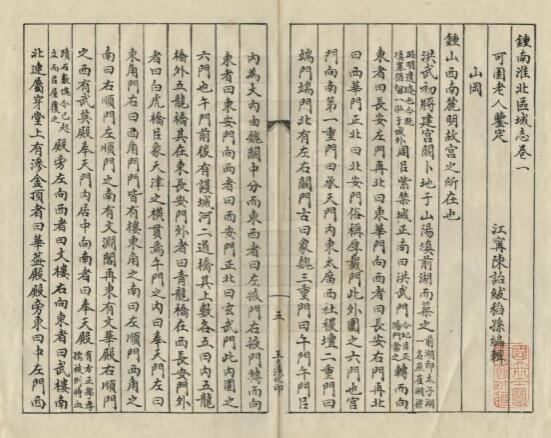 鍾南淮北區域志卷一
可園老人鑒定
江寗陳詒紱稻孫編輯
山岡
鍾山西南麓明故宮之所在也
洪武初將建宮闕卜地于山陽填前湖而築之前湖即太子湖一名燕雀湖築
周呂紫禁城正南曰洪武門轉而向
東者曰長安左門再北曰東華門向西者曰長安右門再北
曰西華門正北曰北安門俗稱厚載門此外圍之六門也宮
門向南第一重門曰承天門內東太廟西社稷壇二重門曰
端門端門北有左右闕門古曰象魏三重門曰午門午門呂
內為大內由魏闕中分而東西者曰左掖門右掖門轉而向
東者曰東安門向西者曰西安門正北曰玄武門此內圍之
六門也午門前後有護城河二道橋其上數各五曰內五龍
橋外五龍橋其在東長安門外者曰青龍橋在西長安門外
者曰白虎橋呂象天津之橫貫焉午門之內曰奉天門左曰
東角門右曰西角門門皆有樓東角之南曰左順門西角之
南曰右順門左順門之南有文淵閣再東有文華殿右順門
之西有武英殿奉天門內居中向南者曰奉天殿有方正學孝
孺被刑時血
蹟石殿旁左向西者曰文樓右向東者曰武樓南
北連屬穿堂上有滲金頂者曰華葢殿殿旁東曰中左門西
五